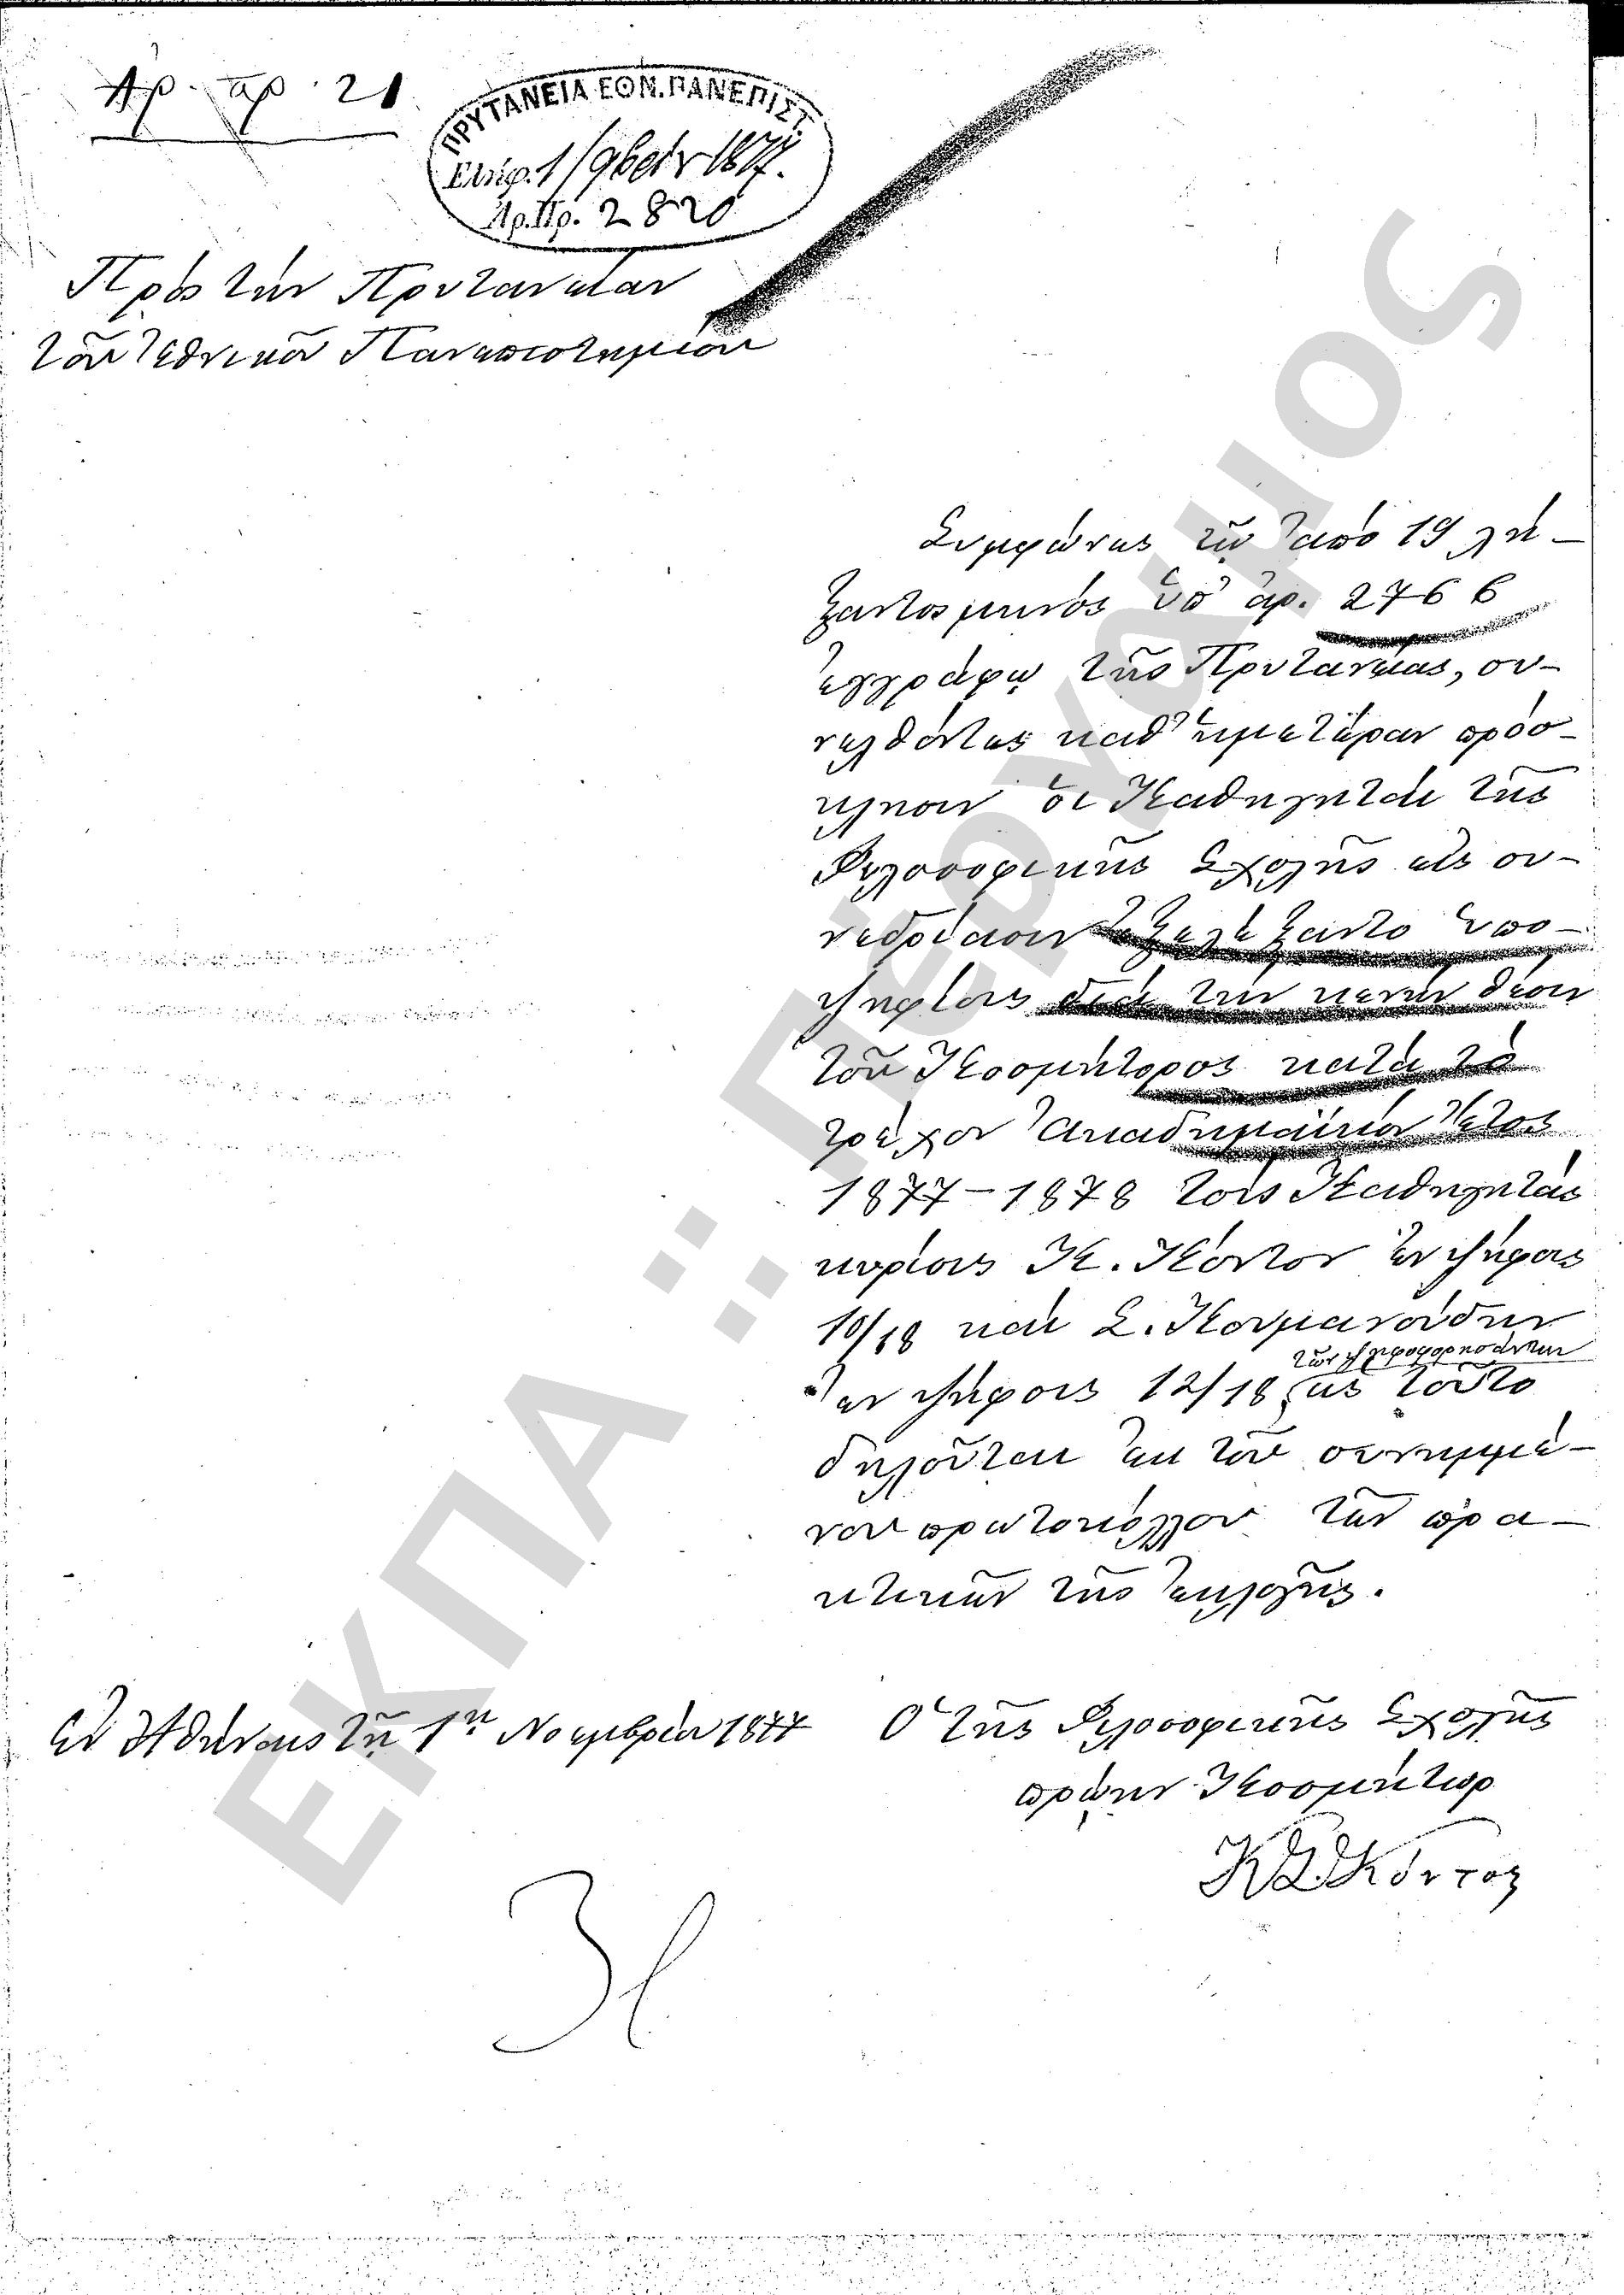 Ἀρ. πρ. 21
ΠΡΥΤΑΝΕΙΑ ΕΘΝ. ΠΑΝΕΠΙΣΤ.
1/9βρίου 1877.
Ἀρ. Πρ. 2820
Πρὸς τὴν Πρυτανείαν
τοῦ Ἐθνικοῦ Πανεπιστημίου
Συμφώνως τῷ ἀπὸ 19 λή-
ξαντος μηνὸς ὑπ' ἀρ. 2766
ἐγγράφῳ τῆς Πρυτανείας, συ-
νελθόντες καθ' ἡμετέραν πρόσ-
κλησιν οἱ Καθηγηταὶ τῆς
Φιλοσοφικῆς Σχολῆς εἰς συ-
νεδρίασιν ἐξελέξαντο ὑπο-
ψηφίους διὰ τὴν κενὴν θέσιν
τοῦ Κοσμήτορος κατὰ τὸ
τρέχον Ἀκαδημαϊκὸν ἔτος
1877-1878 τοὺς Καθηγητὰς
κυρίους Κ. Κόντον ἐν ψήφοις
10/18 καὶ Σ. Κουμανούδην
τῶν ψηφοφορησάντων
ἐν ψήφοις 12/18 ὡς τοῦτο
δηλοῦται ἐκ τοῦ συνημμέ-
νου πρωτοκόλλου τῶν πρα-
κτικῶν τῆς ἐκλογῆς.
Ἐν Ἀθήναις τῇ 1ῃ Νοεμβρίου 1877
Ὁ τῆς Φιλοσοφικῆς Σχολῆς
πρώην Κοσμήτωρ
Κ.Σ.Κόντος
ΕΚΠΑ :: Πέργαμος